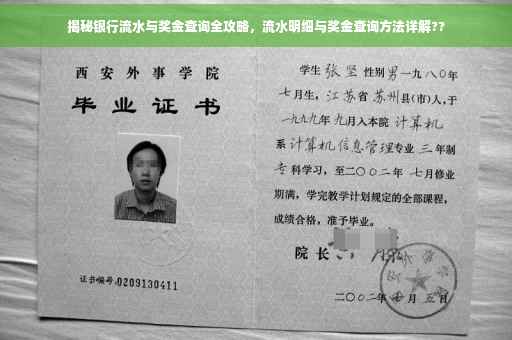 揭秘银行流水与奖金查询全攻略，流水明细与奖金查询方法详解??
西安外事学院
毕业证书
证书编号:0209130411
学生张坚性别男一九八〇年
七月生，江苏省苏州县(市)人,于
一九九九年九月入本院计算机
系计算机信息管理专业三年制
专科学习，至二〇〇二年七月修业
期满，学完教学计划规定的全部课程，
成绩合格，准予毕业。
院长
二〇〇二年七月五日